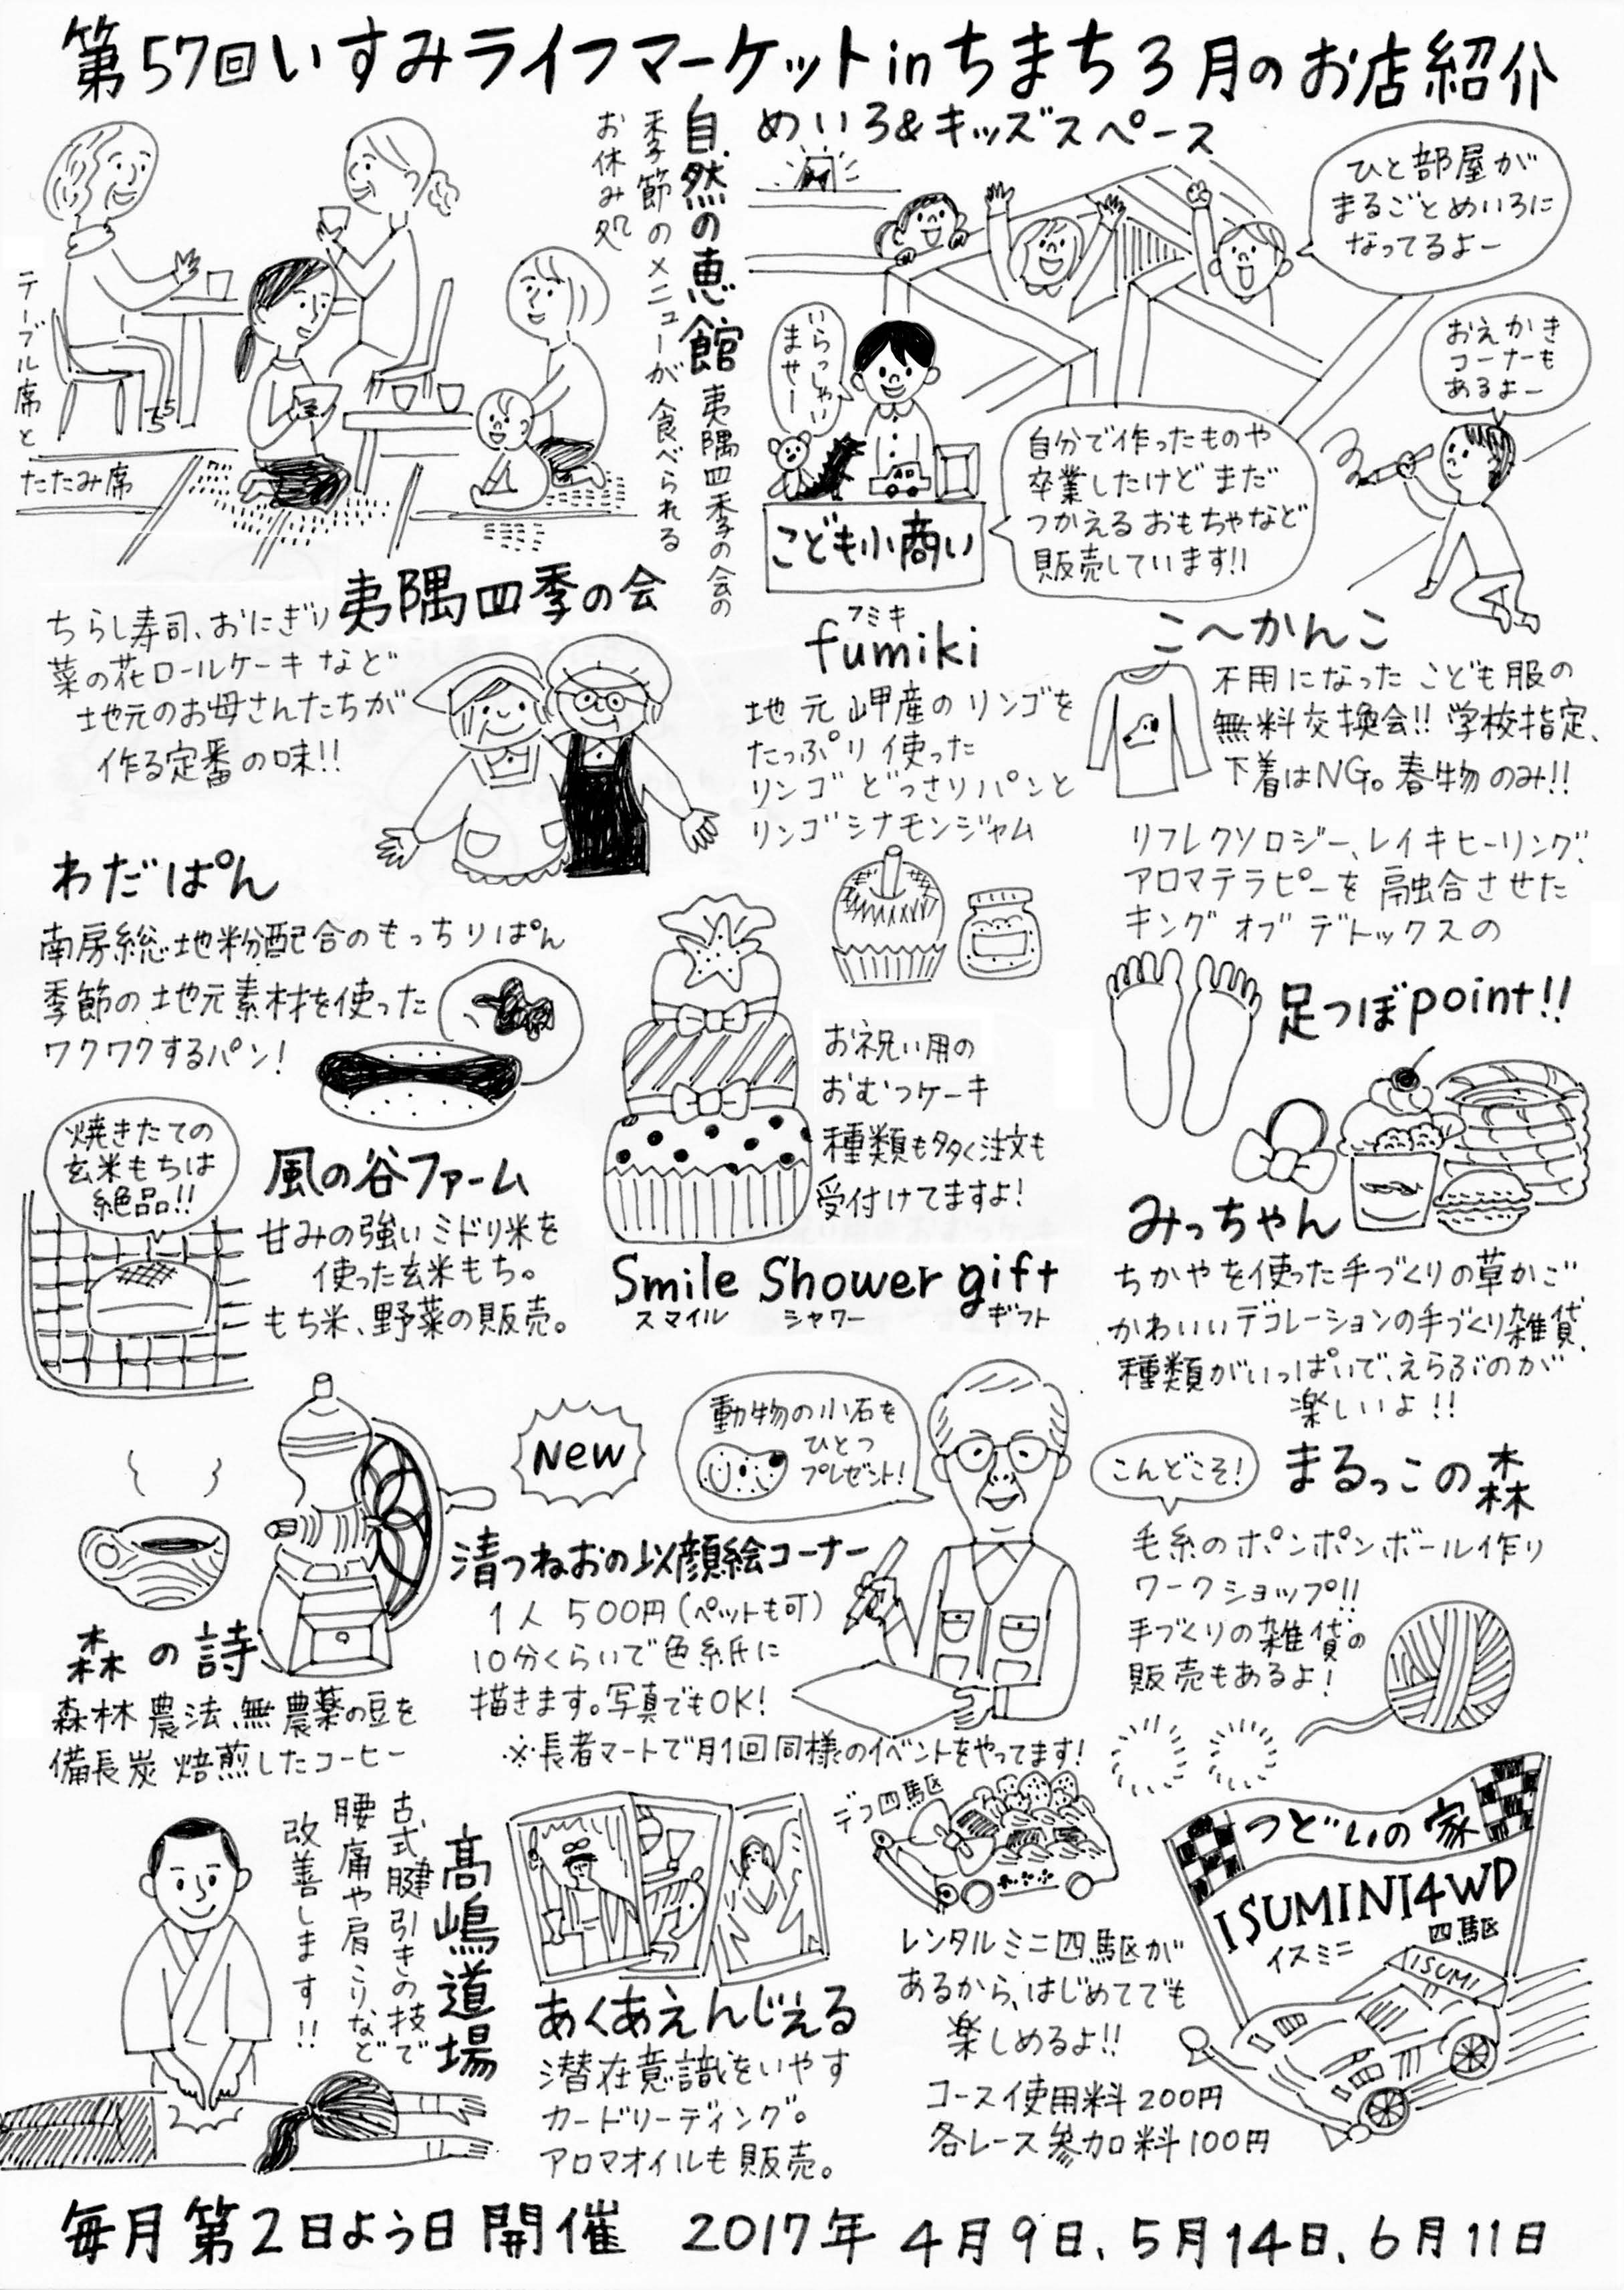 第57回いすみライフマーケットinちまち3月のお店紹介
自然の恵館
夷隅四季の会の
季節のメニューが食べられる
お休み処
テーブル席と
たたみ席
めいろ&キッズスペース
ひと部屋が
まるごとめいろに
なってるよー
おえかき
コーナーも
あるよー
いらっしゃい
ませー
こども小商い
自分で作ったものや
卒業したけどまだ
つかえるおもちゃなど
販売しています!!
夷隅四季の会
ちらし寿司、おにぎり
菜の花ロールケーキなど
地元のお母さんたちが
作る定番の味!!
フミキ
fumiki
地元岬産のリンゴを
たっぷり使った
リンゴどっさりパンと
リンゴシナモンジャム
こ〜かんこ
不用になったこども服の
無料交換会!!学校指定、
下着はNG。春物のみ!!
わだぱん
南房総地粉配合のもっちりぱん
季節の地元素材を使った
ワクワクするパン!
リフレクソロジー、レイキヒーリング、
アロマテラピーを融合させた
キングオブデトックスの
足つぼpoint!!
お祝い用の
おむつケーキ
種類も多く注文も
受付けてますよ!
Smile Shower gift
スマイル シャワー ギフト
焼きたての
玄米もちは
絶品!!
風の谷ファーム
甘みの強いミドリ米を
使った玄米もち。
もち米、野菜の販売。
みっちゃん
ちがやを使った手づくりの草かご
かわいいデコレーションの手づくり雑貨、
種類がいっぱいで、えらぶのが
楽しいよ!!
New
動物の小石を
ひとつ
プレゼント!
清つねおの似顔絵コーナー
1人 500円(ペットも可)
10分くらいで色紙に
描きます。写真でもOK!
※長者マートで月1回同様のイベントをやってます!
こんどこそ!
まるっこの森
毛糸のポンポンボール作り
ワークショップ!!
手づくりの雑貨の
販売もあるよ!
森の詩
森林農法、無農薬の豆を
備長炭焙煎したコーヒー
髙嶋道場
古式腱引きの技で
腰痛や肩こりなど
改善します!!
あくあえんじぇる
潜在意識をいやす
カードリーディング。
アロマオイルも販売。
デコ四駆
つどいの家
ISUMINI4WD
イスミニ 四駆
ISUMI
レンタルミニ四駆が
あるから、はじめてでも
楽しめるよ!!
コース使用料200円
各レース参加料100円
毎月第2日よう日開催 2017年4月9日、5月14日、6月11日